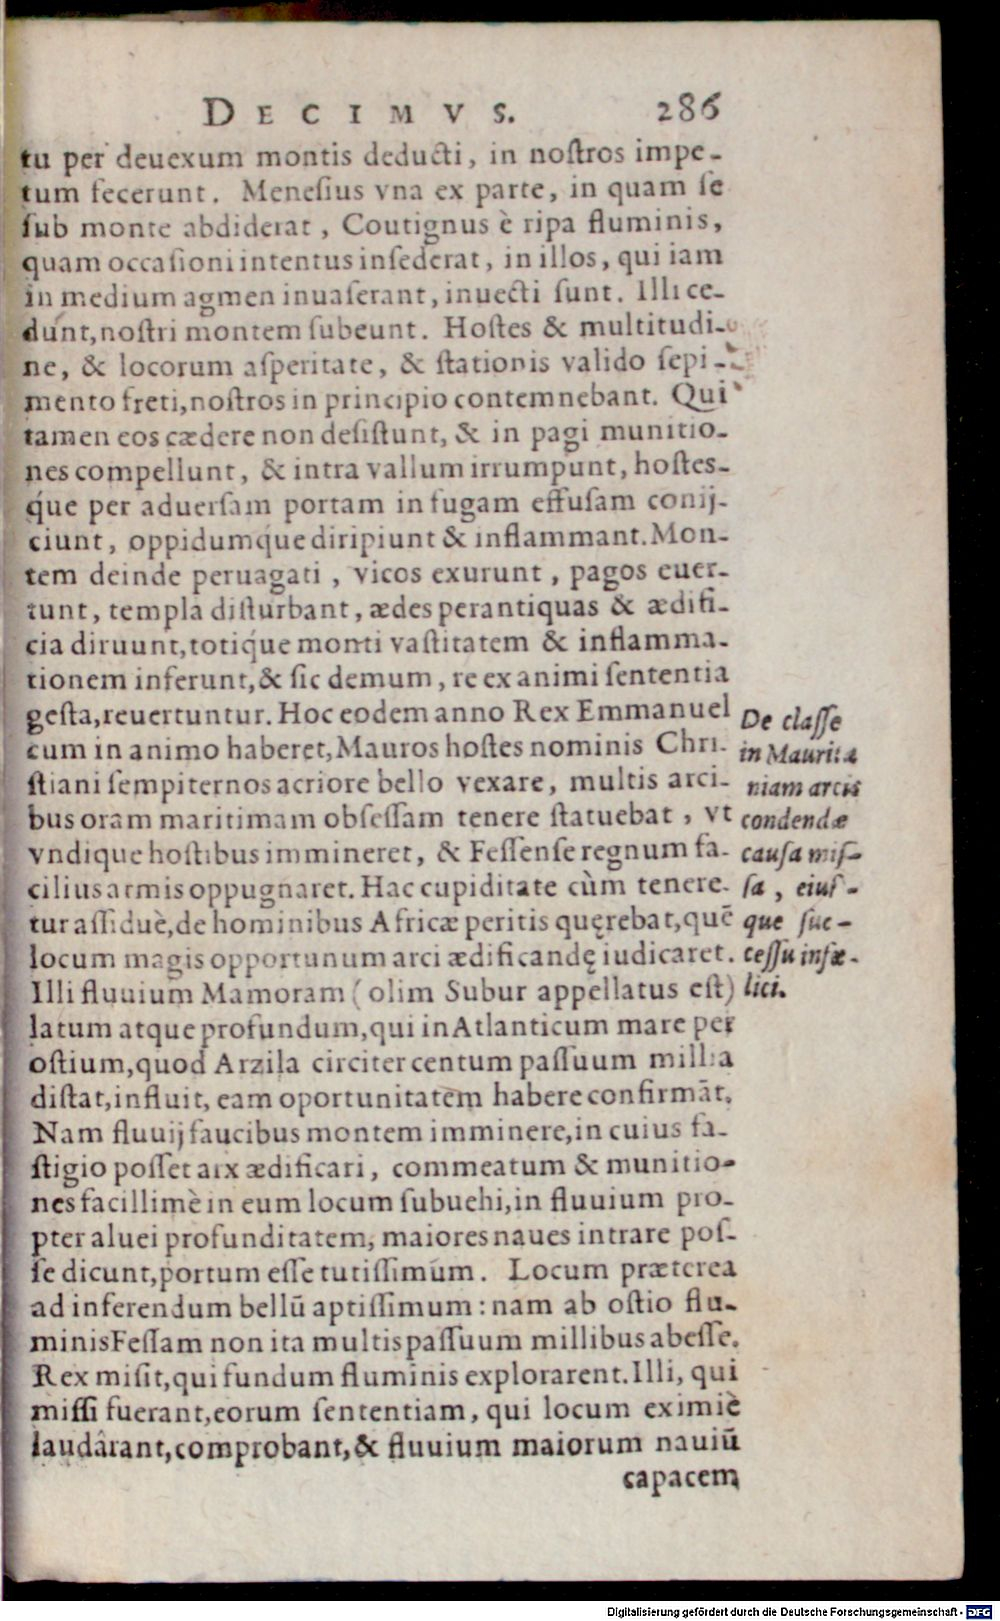 DECIMVS. 286
tu per deuexum montis deducti, in nostros impe-
tum fecerunt. Menesius vna ex parte, in quam se
sub monte abdiderat, Coutignus è ripa fluminis,
quam occasioni intentus insederat, in illos, qui iam
in medium agmen inuaserant, inuecti sunt. Illi ce-
dunt, nostri montem subeunt. Hostes & multitudi-
ne, & locorum asperitate, & stationis valido sepi-
mento freti, nostros in principio contemnebant. Qui
tamen eos cædere non desistunt, & in pagi munitio-
nes compellunt, & intra vallum irrumpunt, hostes-
q́ue per aduersam portam in fugam effusam conij-
ciunt, oppidumq́ue diripiunt & inflammant. Mon-
tem deinde peruagati, vicos exurunt, pagos euer-
tunt, templa disturbant, ædes perantiquas & ædifi-
cia diruunt, totiq́ue monti vastitatem & inflamma-
tionem inferunt, & sic demum, re ex animi sententia
gesta, reuertuntur. Hoc eodem anno Rex Emmanuel
cum in animo haberet, Mauros hostes nominis Chri-
stiani sempiternos acriore bello vexare, multis arci-
bus oram maritimam obsessam tenere statuebat, vt
vndique hostibus immineret, & Fessense regnum fa-
cilius armis oppugnaret. Hac cupiditate cùm tenere-
tur assiduè, de hominibus Africæ peritis quęrebat, quē
locum magis opportunum arci ædificandę iudicaret.
Illi fluuium Mamoram (olim Subur appellatus est)
latum atque profundum, qui in Atlanticum mare per
ostium, quod Arzila circiter centum passuum millia
distat, influit, eam oportunitatem habere confirmāt.
Nam fluuij faucibus montem imminere, in cuius fa-
stigio posset arx ædificari, commeatum & munitio-
nes facillimè in eum locum subuehi, in fluuium pro-
pter aluei profunditatem, maiores naues intrare pos-
se dicunt, portum esse tutissimum. Locum præterea
ad inferendum bellū aptissimum: nam ab ostio flu-
minis Fessam non ita multis passuum millibus abesse.
Rex misit, qui fundum fluminis explorarent. Illi, qui
missi fuerant, eorum sententiam, qui locum eximiè
laudârant, comprobant, & fluuium maiorum nauiū
capacem
De classe
in Maurita
niam arcis
condendæ
causa mis-
sa, eius-
que suc-
cessu infæ-
lici.
Digitalisierung gefördert durch die Deutsche Forschungsgemeinschaft - DFG